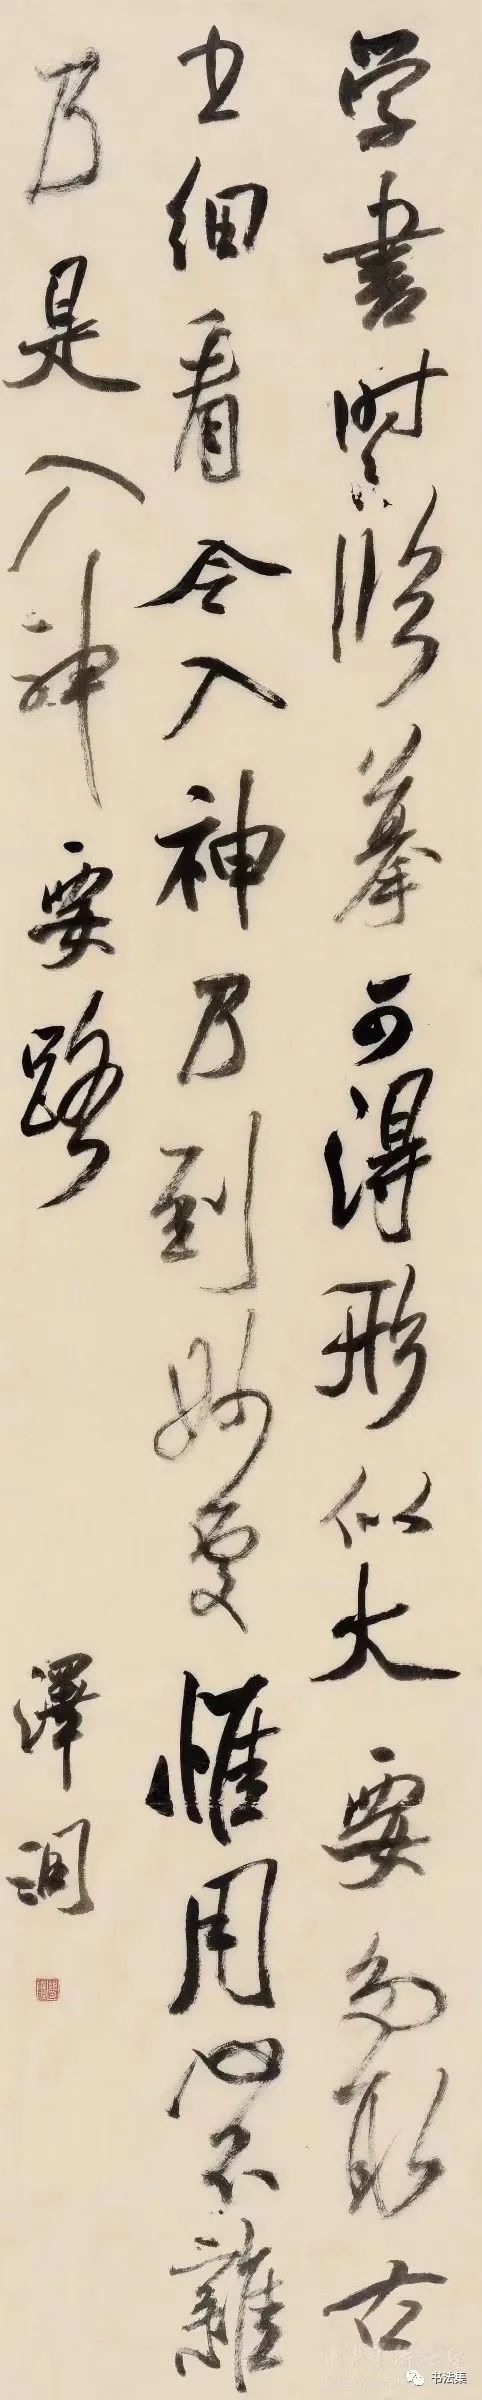 学書时〻临摹可得形似大要多取古
书细看令入神乃到妙處惟用心不雜
乃是入神要路
澤
书法集